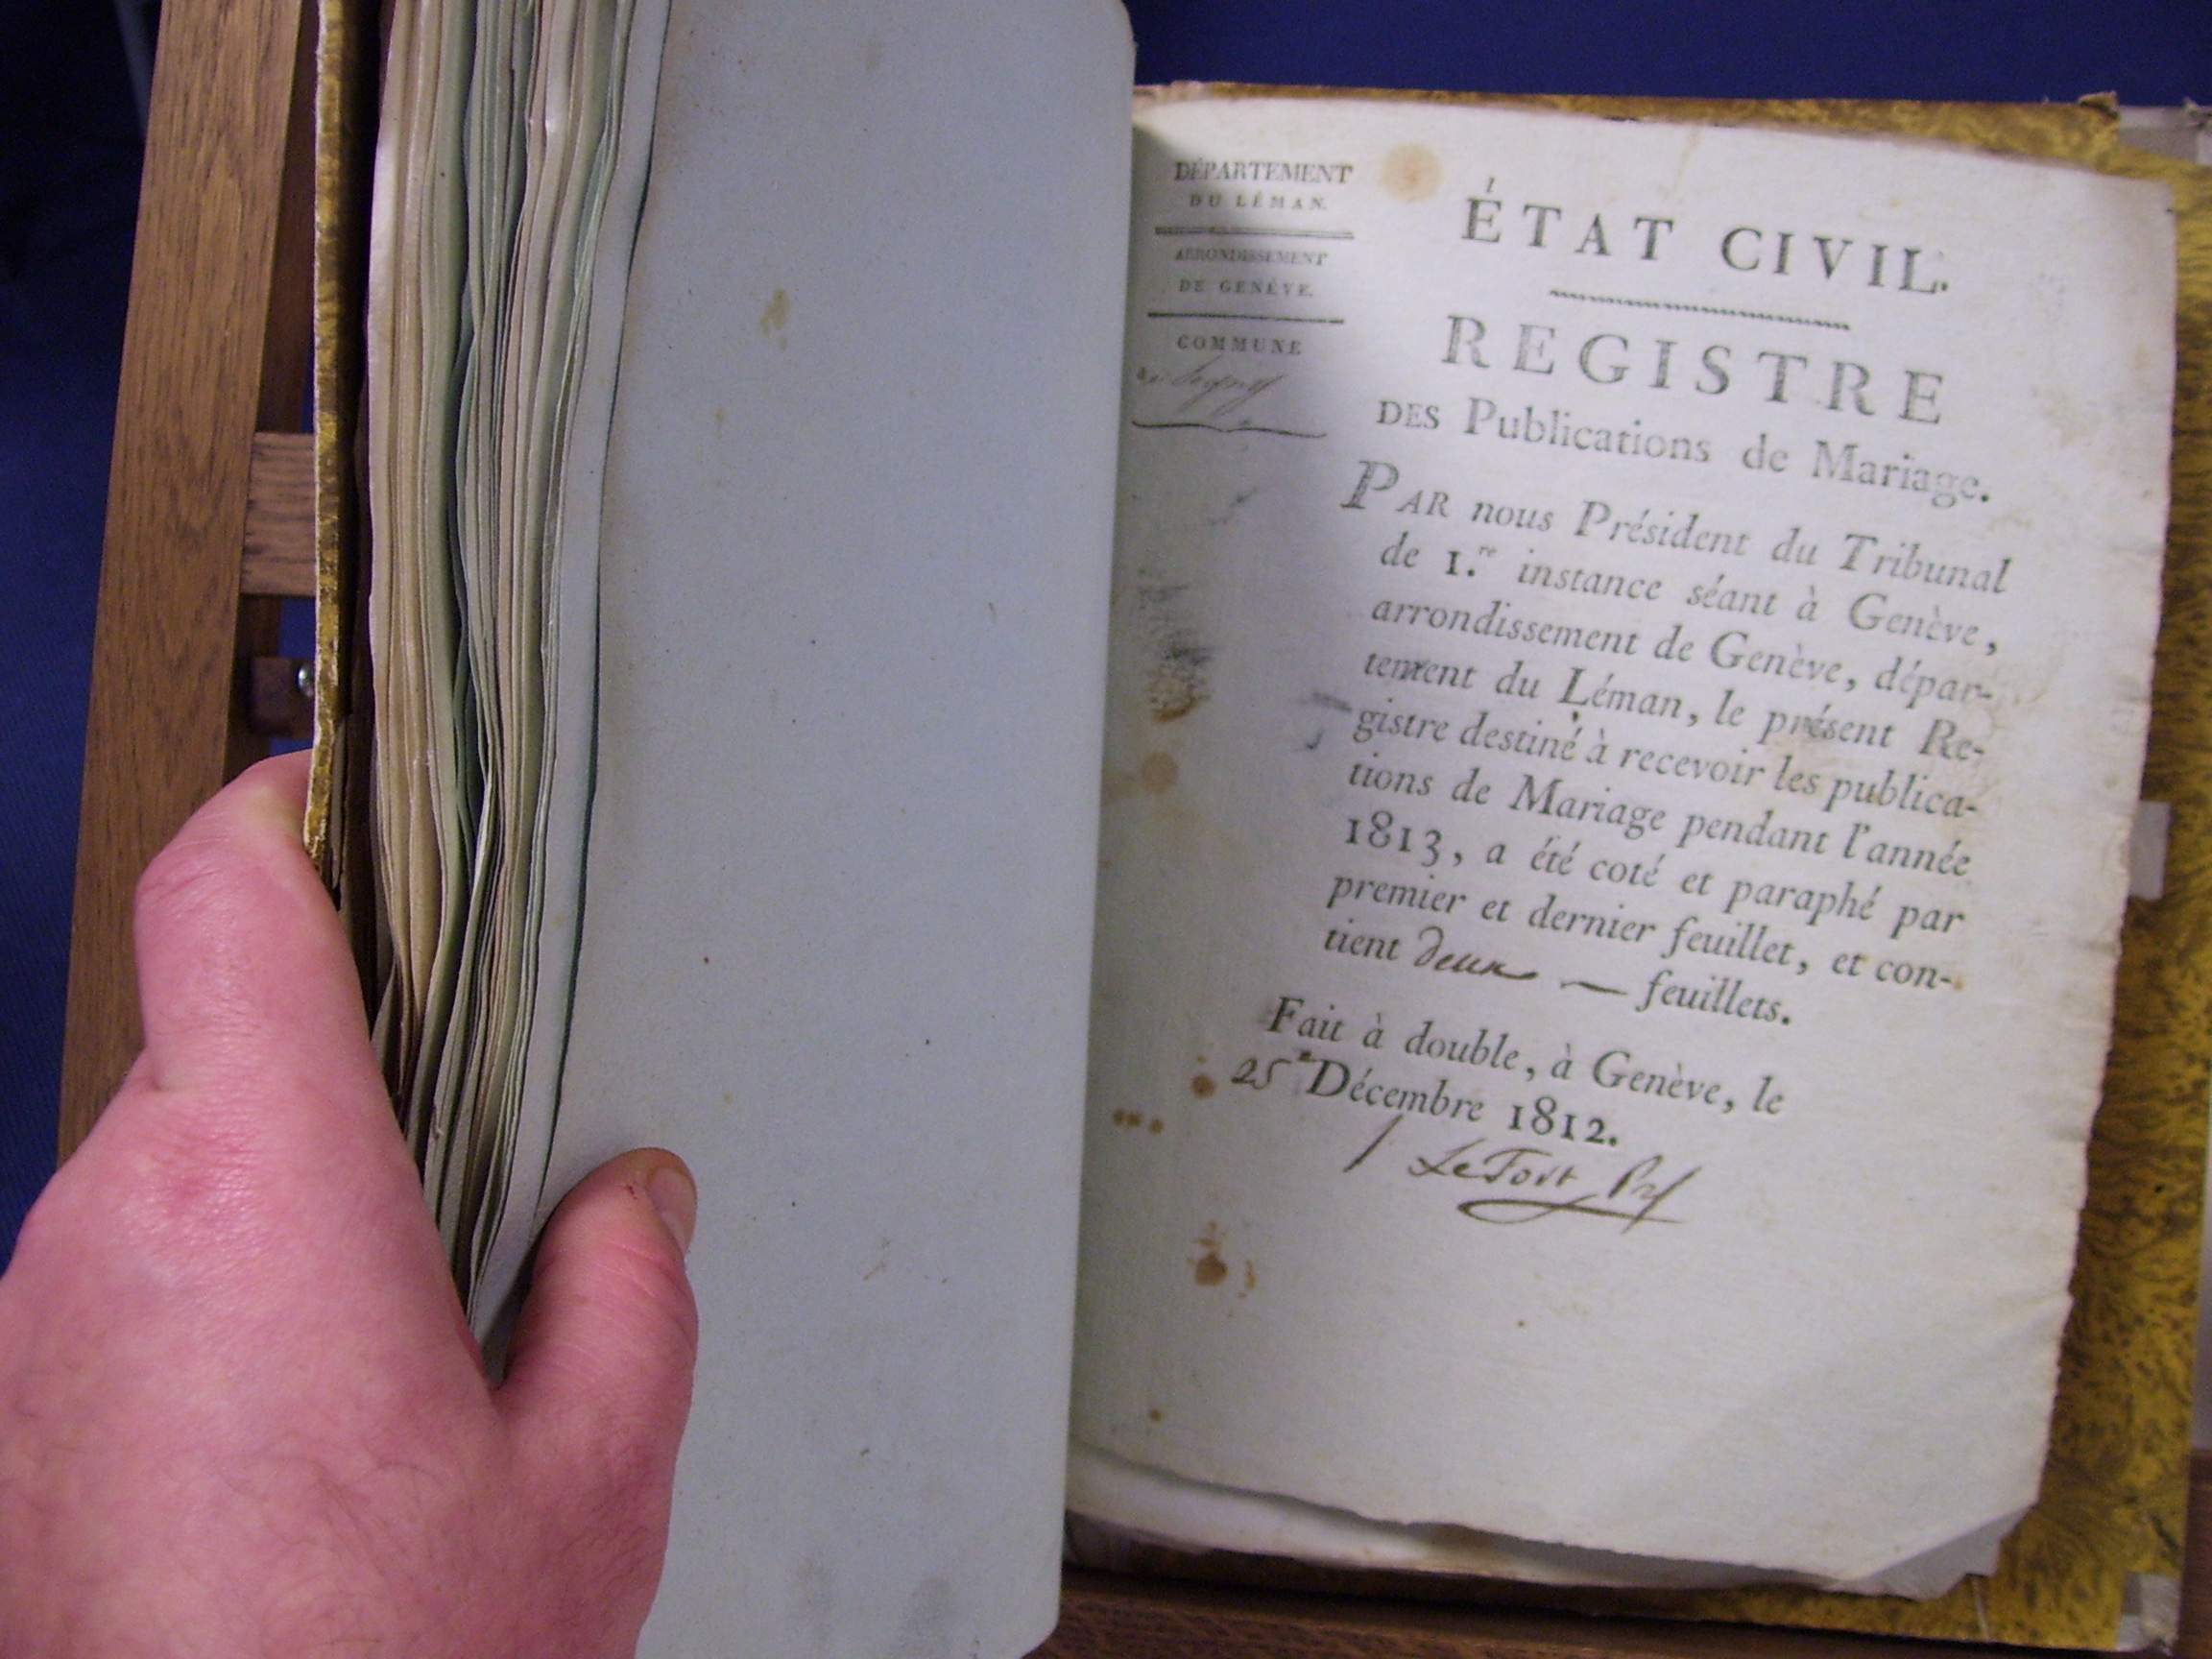 DÉPARTEMENT
DU LÉMAN.
ARRONDISSEMENT
DE GENÈVE.
COMMUNE
ÉTAT CIVIL.
REGISTRE
DES Publications de Mariage.
PAR nous Président du Tribunal
de 1.re instance séant à Genève,
arrondissement de Genève, dépar-
tement du Léman, le présent Re-
gistre destiné à recevoir les publica-
tions de Mariage pendant l'année
1813, a été coté et paraphé par
premier et dernier feuillet, et con-
tient deux — feuillets.
Fait à double, à Genève, le
25e Décembre 1812.
LeFort